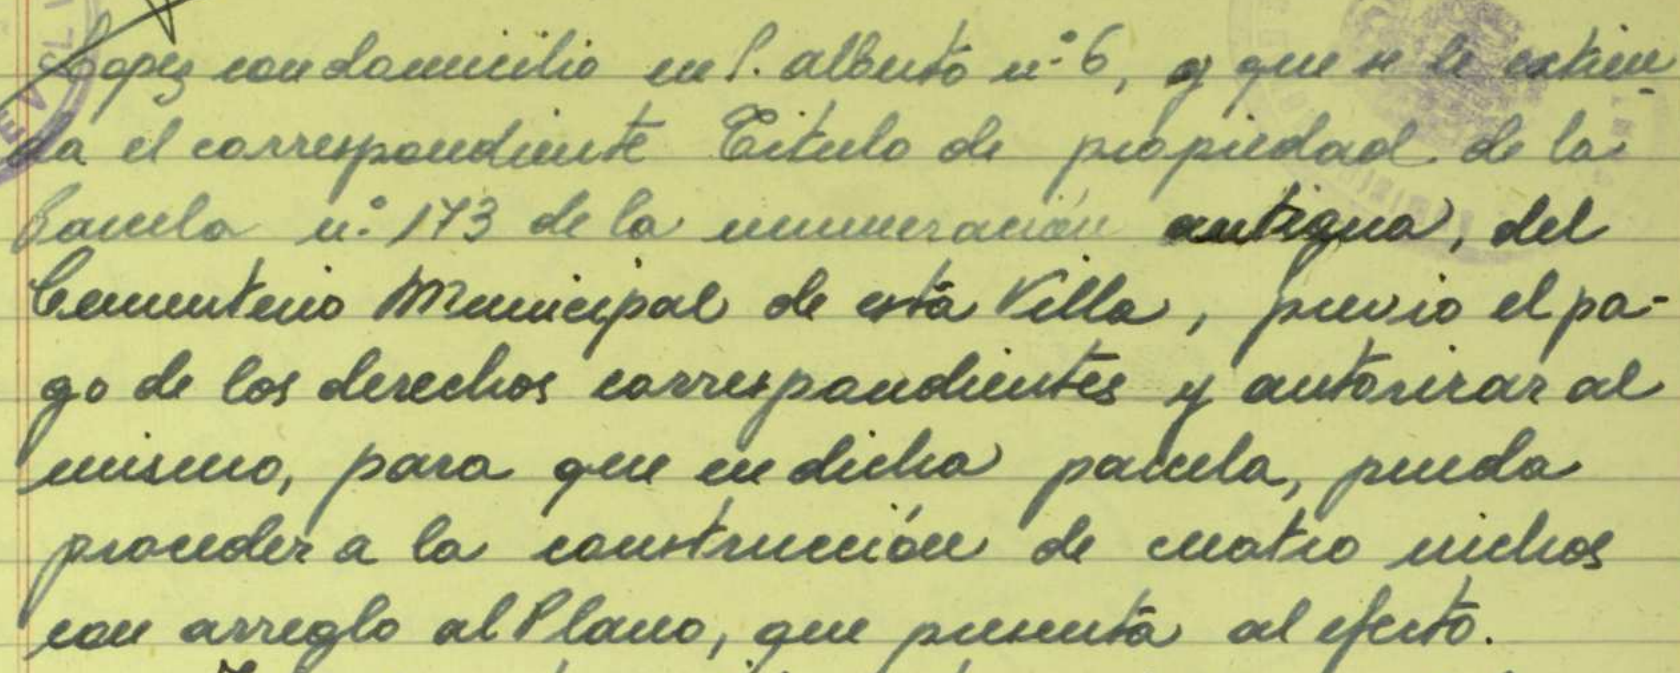 Lopez con domicilio en S. Alberto nº 6, y que se le extien
da el correspondiente Titulo de propiedad de la
Parcela nº 173 de la numeración antigua, del
Cementerio Municipal de esta Villa, previo el pa-
go de los derechos correspondientes y autorizar al
mismo, para que en dicha parcela, pueda
proceder a la construcción de cuatro nichos
con arreglo al Plano, que presenta al efecto.